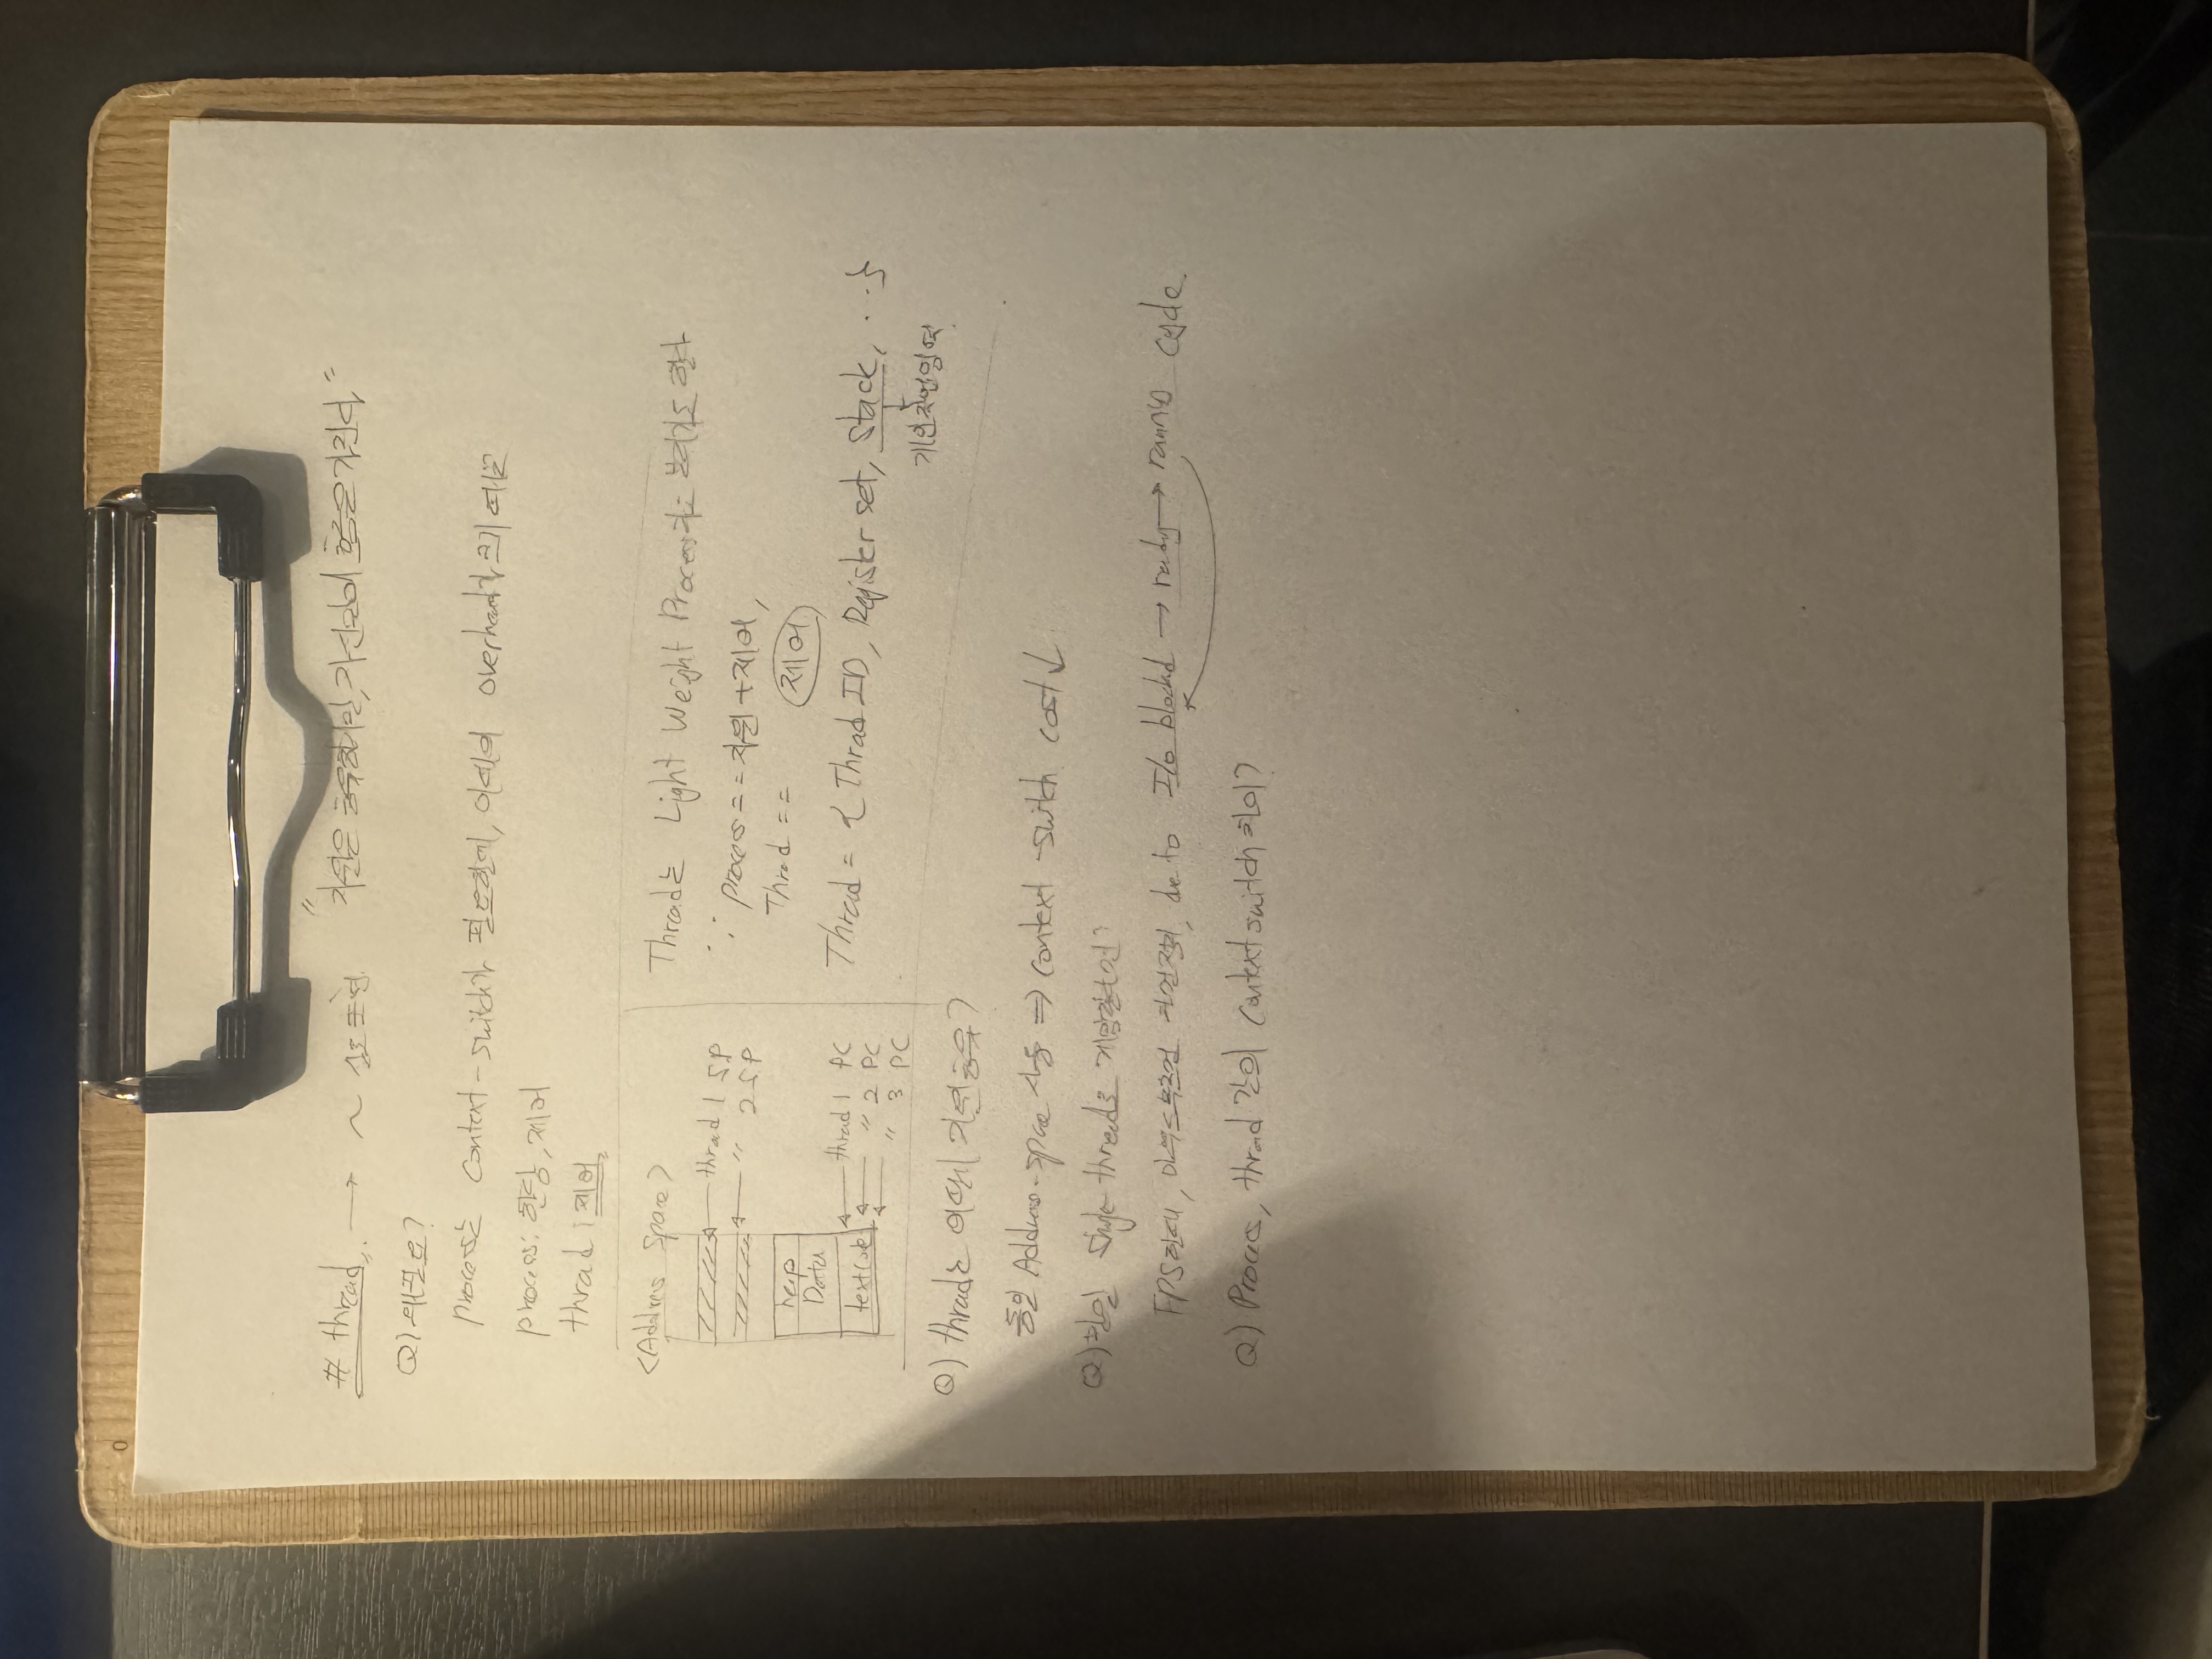 0
# thread → ~ "자원은 공유하지만, 자신만의 흐름은 가진다"
Q) 왜 필요?
process는 context-switch가 필요한데, 이때의 overhead가 크기 때문
process: 할당, 제어
thread : 제어
<Address Space>
thread 1 SP
〃 2 SP
heap
Data
text code
thread 1 PC
〃 2 PC
〃 3 PC
Thread는 Light Weight Process라고 불리기도 한다
∵ process == 자원 + 제어,
Thread == 제어
Thread = { Thread ID, Register set, Stack, ... }
개인작업영역
Q) thread는 어떻게 자원 공유?
동일 Address-space 사용 ⇒ context-switch cost↓
Q) 만일 single thread로 게임한다면?
FPS한데, 마우스 화면정지, due to I/o blocked → ready → running cycle.
Q) Process, thread 간의 context switch 차이?